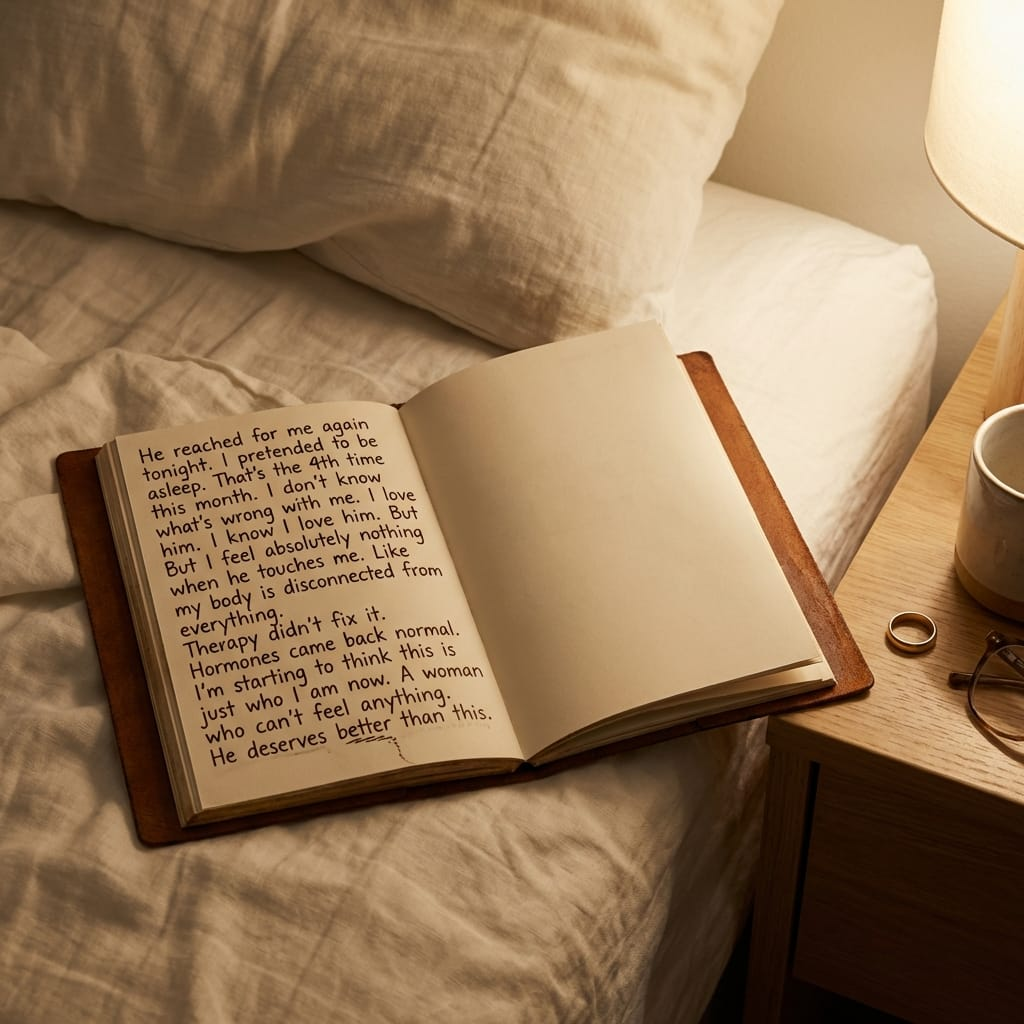 He reached for me again
tonight. I pretended to be
asleep. That's the 4th time
this month. I don't know
what's wrong with me. I love
him. I know I love him. But
But I feel absolutely nothing
when he touches me. Like
my body is disconnected from
everything.
Therapy didn't fix it.
Hormones came back normal.
I'm starting to think this is
just who I am now. A woman
who can't feel anything.
He deserves better than this.